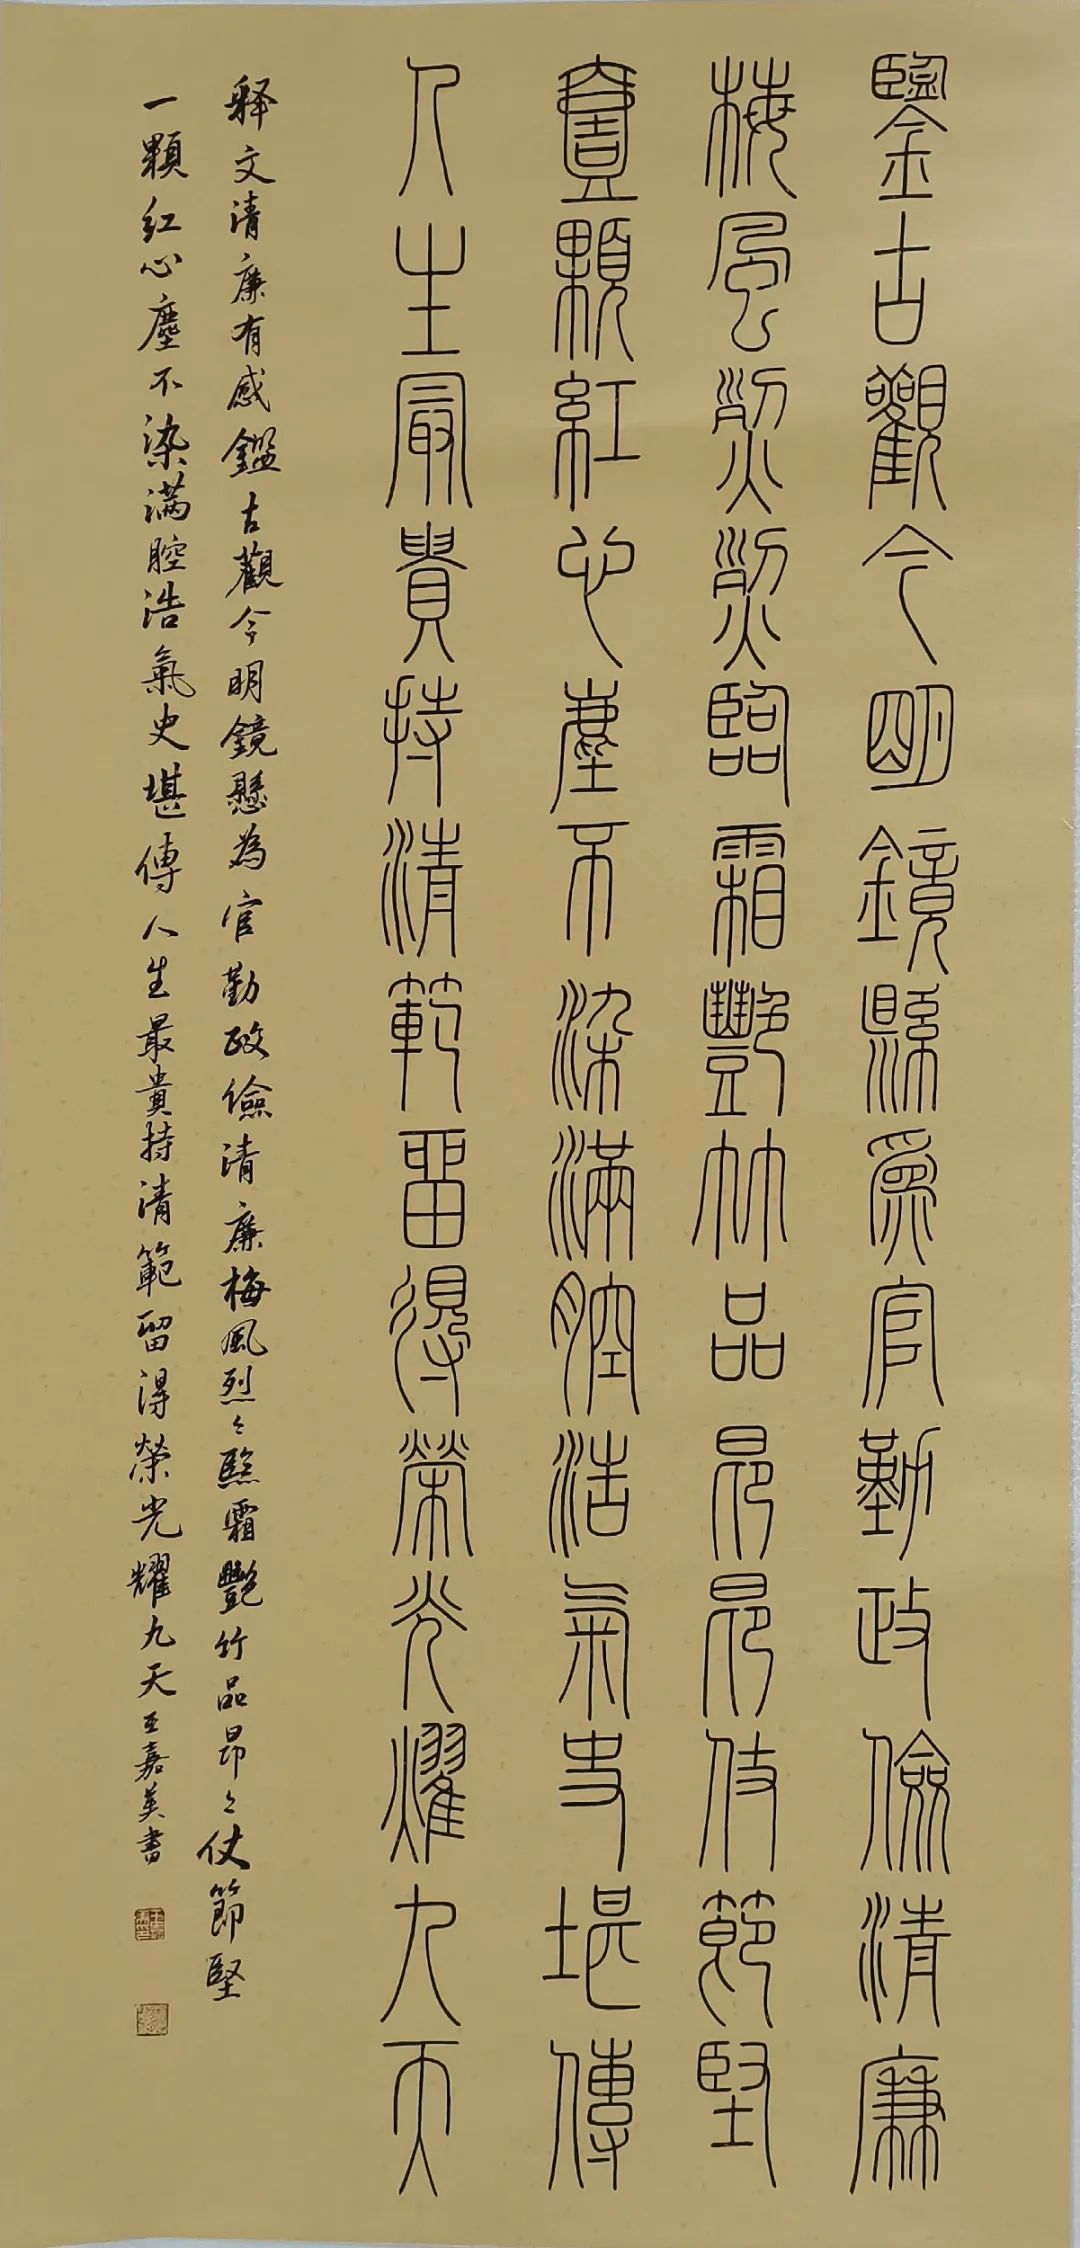 鑒古觀今明鏡縣為官勤政儉清廉
梅風烈烈臨霜艷竹品昂昂仗節堅
壹顆紅心塵不染滿腔浩氣史堪傳
人生最貴持清範留得榮光耀九天
释文清廉有感鑑古觀今明鏡懸為官勤政儉清廉梅風烈々臨霜艷竹品昂々仗節堅
一顆红心塵不染满腔浩氣史堪傳人生最貴持清範留得榮光耀九天王嘉英書